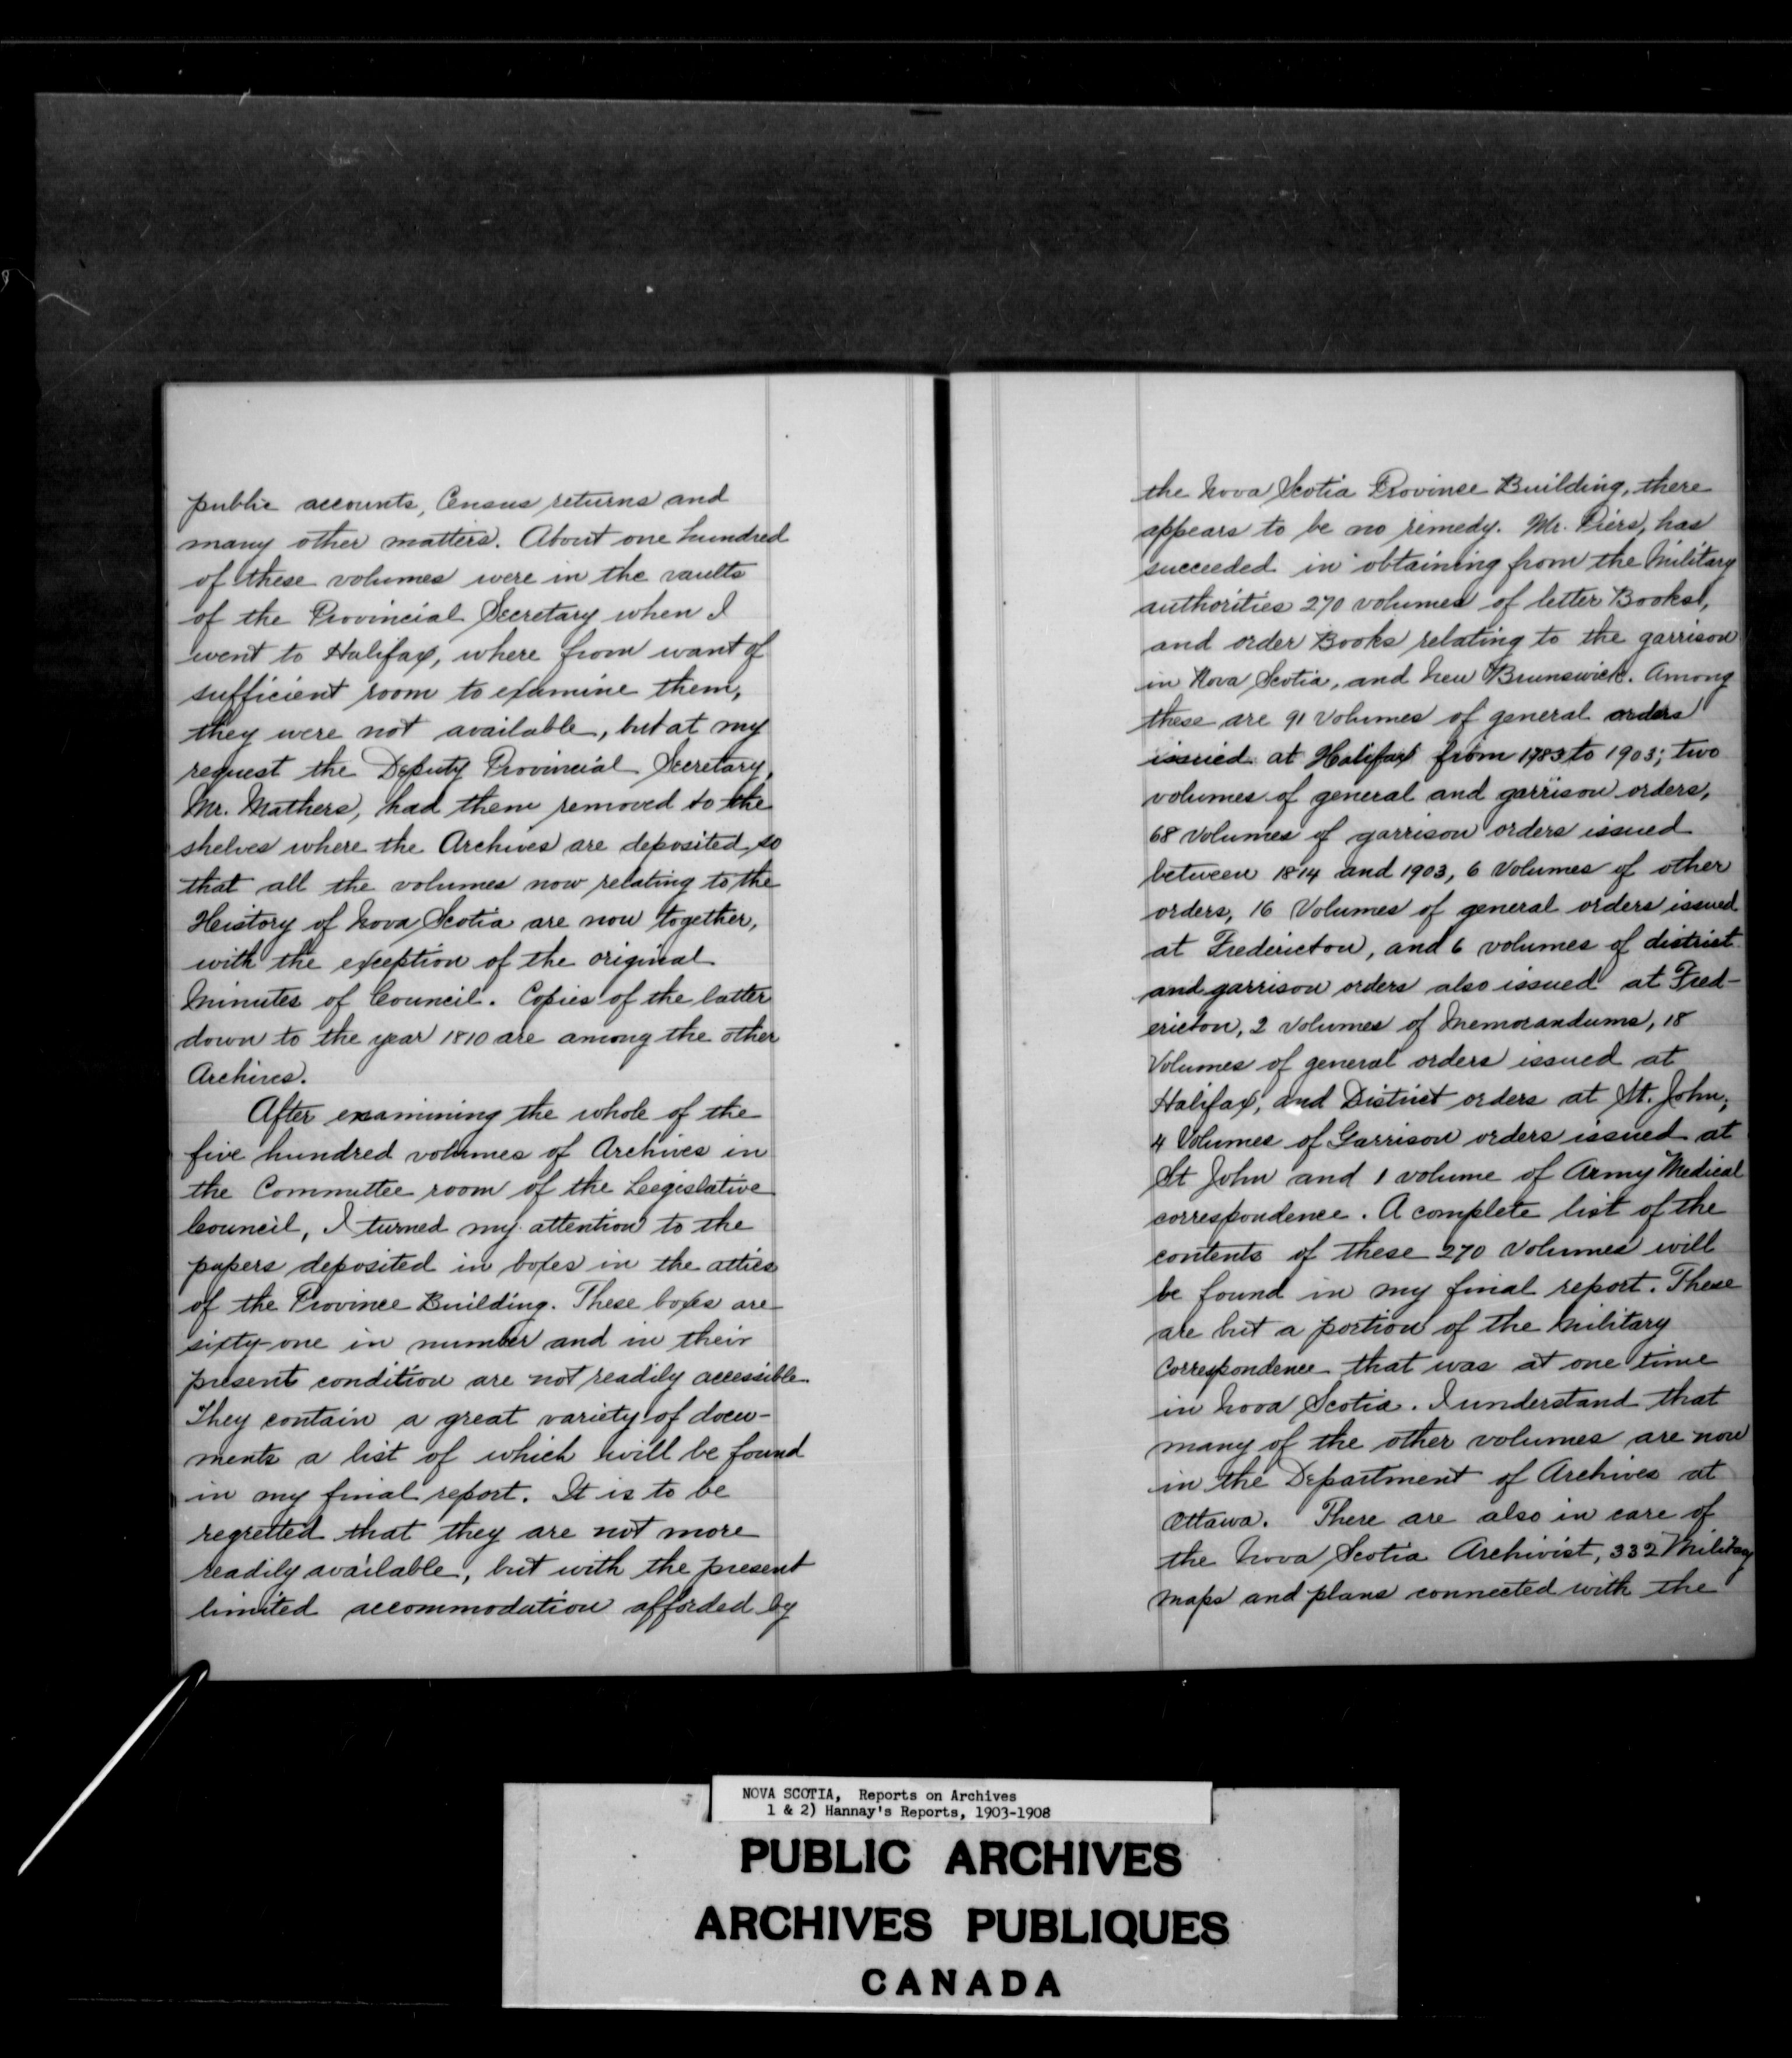 public accounts, Census returns and
many other matters. About one hundred
of these volumes were in the vaults
of the Provincial Secretary when I
went to Halifax, where from want of
sufficient room to examine them,
they were not available, but at my
request the Deputy Provincial Secretary,
Mr. Mathers, had them removed to the
shelves where the Archives are deposited, so
that all the volumes now relating to the
History of Nova Scotia are now together,
with the exception of the original
Minutes of Council. Copies of the latter
down to the year 1810 are among the other
Archives.
After examining the whole of the
five hundred volumes of Archives in
the Committee room of the Legislative
Council, I turned my attention to the
papers deposited in boxes in the attics
of the Province Building. These boxes are
sixty-one in number and in their
present condition are not readily accessible.
They contain a great variety of docu-
ments a list of which will be found
in my final report. It is to be
regretted that they are not more
readily available, but with the present
limited accommodation afforded by
the Nova Scotia Province Building, there
appears to be no remedy. Mr. Piers, has
succeeded in obtaining from the Military
authorities 270 volumes of letter Books,
and order Books relating to the garrison
in Nova Scotia, and New Brunswick. Among
these are 91 volumes of general orders
issued at Halifax from 1783 to 1903; two
volumes of general and garrison orders,
68 volumes of garrison orders issued
between 1814 and 1903, 6 Volumes of other
orders, 16 Volumes of general orders issued
at Fredericton, and 6 volumes of district
and garrison orders also issued at Fred-
ericton, 2 volumes of Memorandums, 18
Volumes of general orders issued at
Halifax, and District orders at St. John,
4 Volumes of Garrison orders issued at
St John and 1 volume of Army Medical
correspondence. A complete list of the
contents of these 270 Volumes will
be found in my final report. These
are but a portion of the Military
Correspondence that was at one time
in Nova Scotia. I understand that
many of the other volumes are now
in the Department of Archives at
Ottawa. There are also in care of
the Nova Scotia Archivist, 332 Military
Maps and plans connected with the
NOVA SCOTIA, Reports on Archives
1 & 2) Hannay's Reports, 1903-1908
PUBLIC ARCHIVES
ARCHIVES PUBLIQUES
CANADA